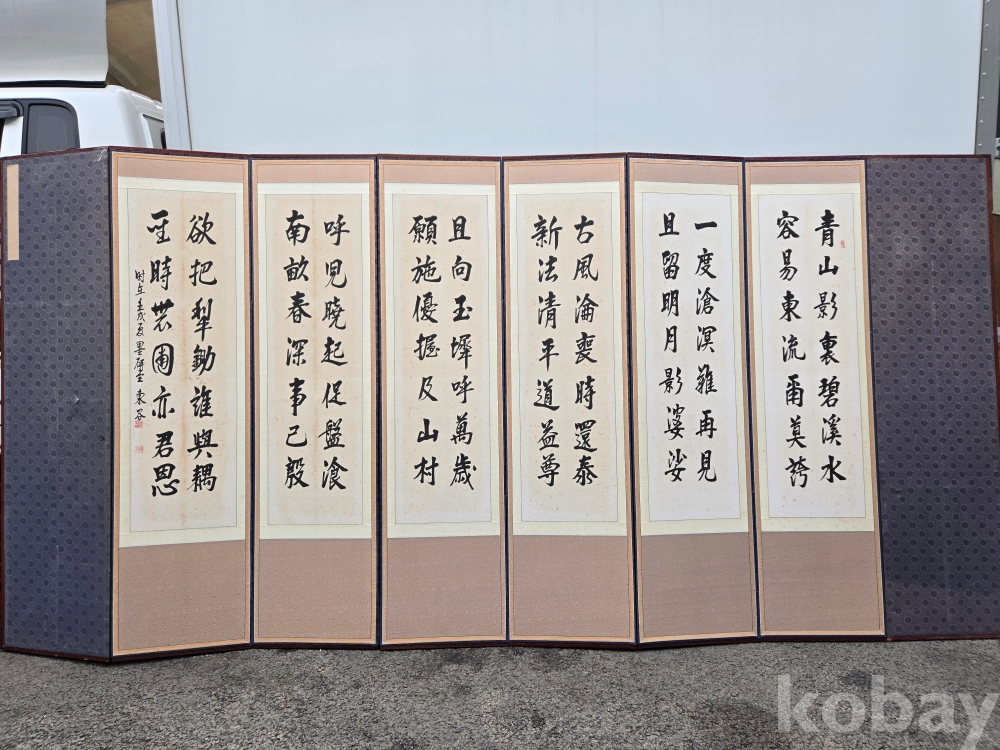 青山影裏碧溪水
容易東流爾莫誇
一度滄溟難再見
且留明月影婆娑
古風淪喪時還泰
新法清平道益尊
且向玉墀呼萬歲
願施優握及山村
呼兒曉起促盤湌
南畝春深事已殷
欲把犁鋤誰與耦
聖時農圃亦君恩
時在壬戌夏墨 東谷
kobay